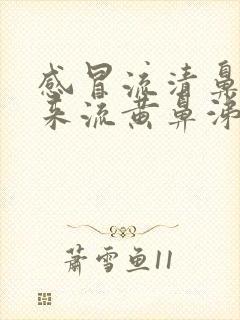 感冒流清鼻
来流黄鼻涕
萧雪鱼11